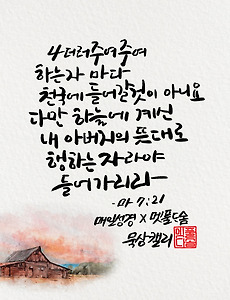 나더러 주여 주여
하는 자 마다
천국에 들어갈 것이 아니요
다만 하늘에 계신
내 아버지의 뜻대로
행하는 자라야
들어가리라
마 7:21
매일성경 X 멋풀도술
묵상캘리